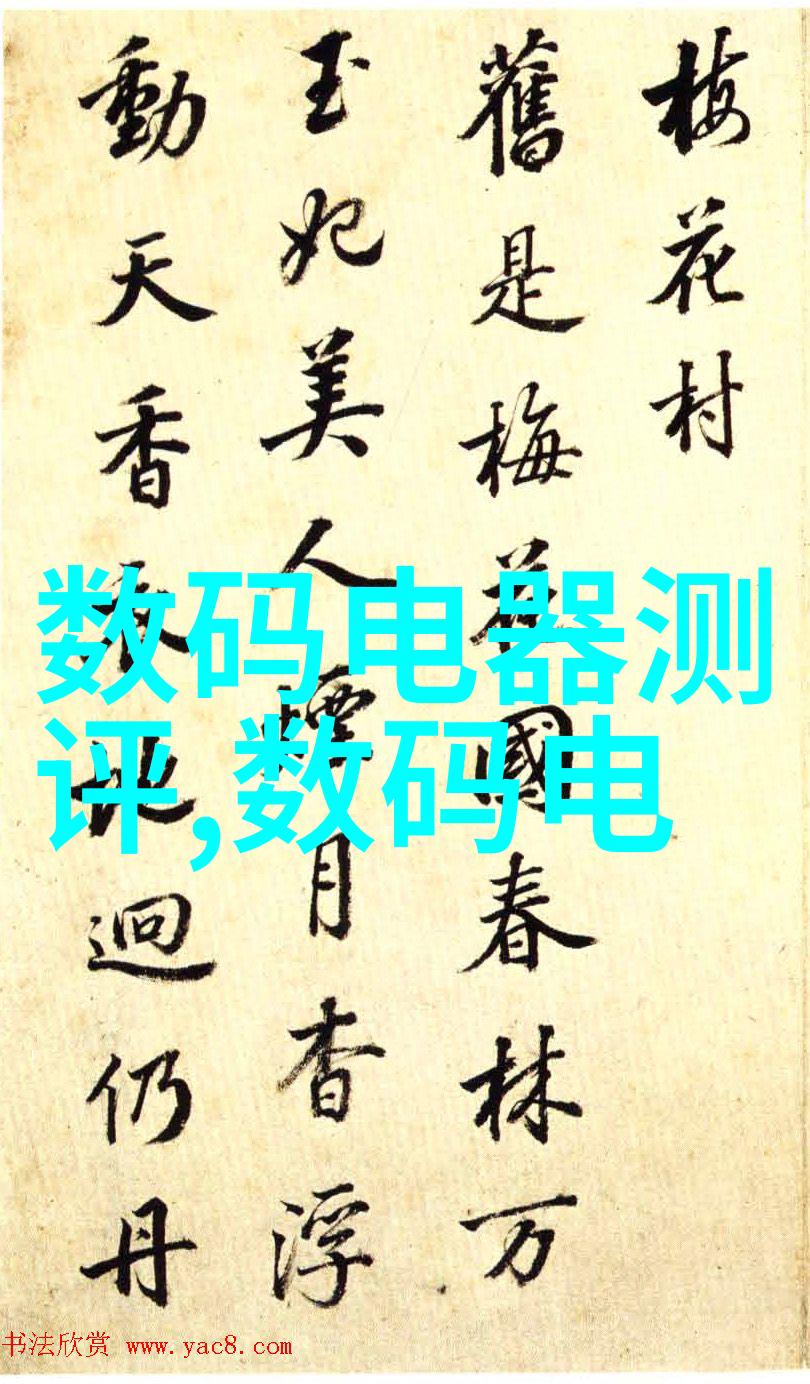 梅花村
舊是梅花國春林万
玉妃美人煙月杳浮
動天香地逈仍丹
数码电器测
评,数码电
书法欣赏 www.yac8.com